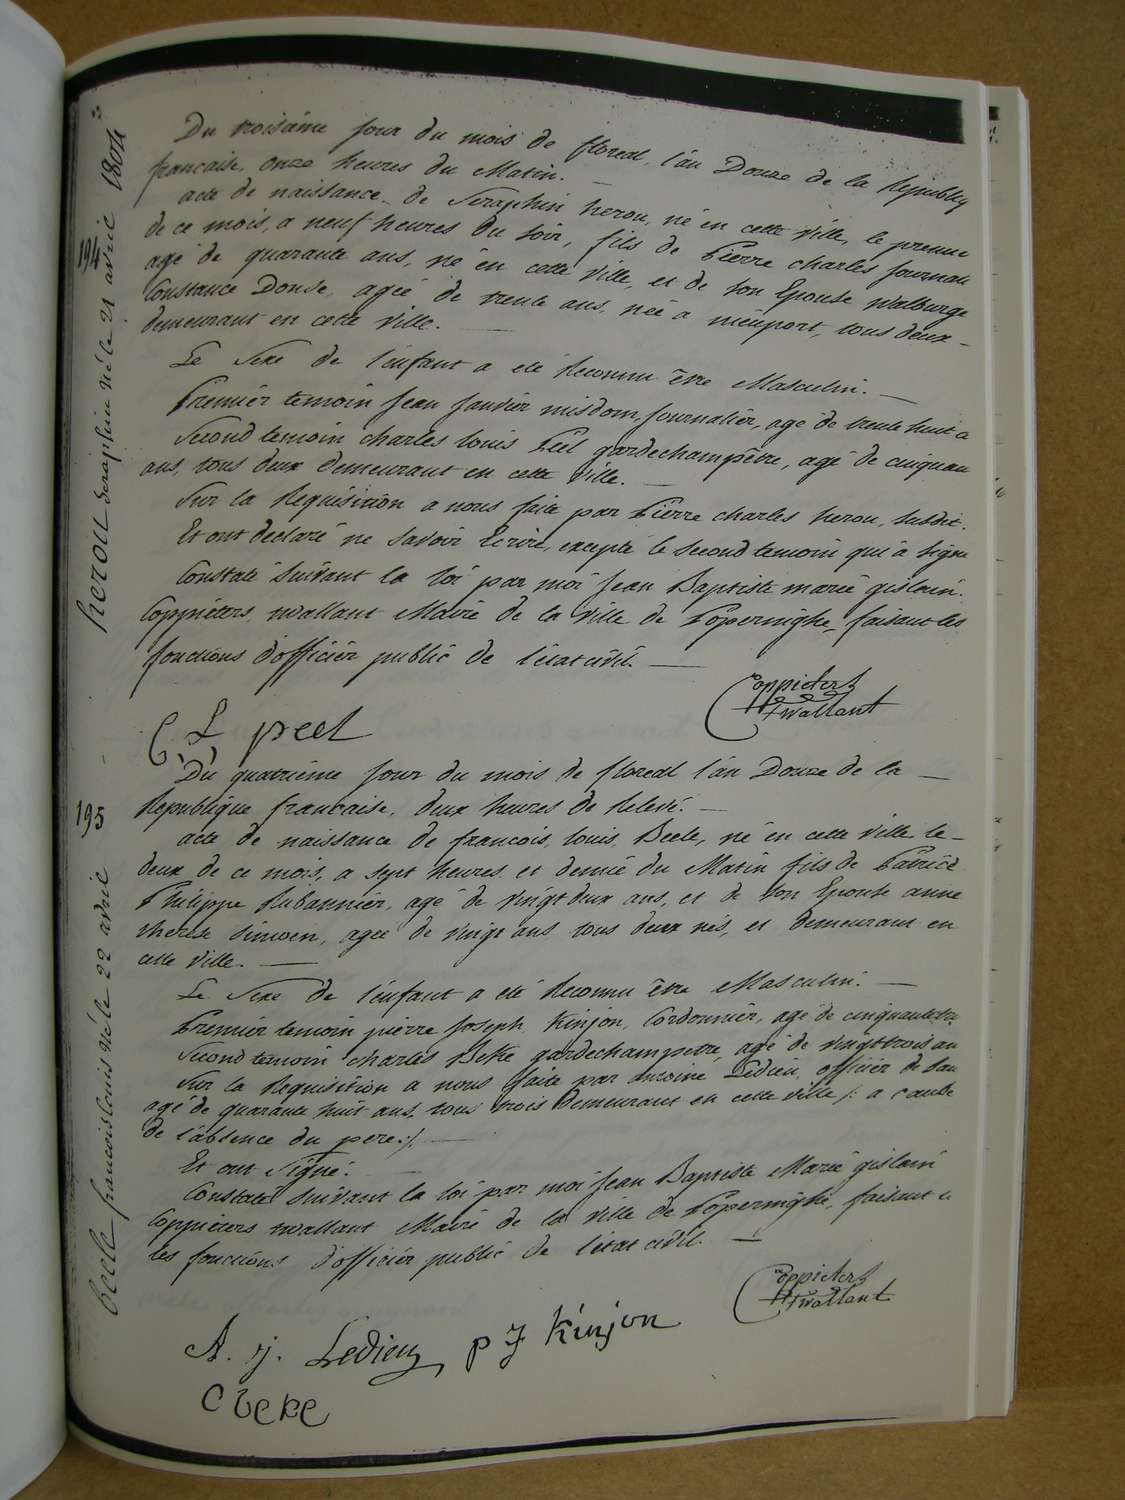 Du troisiéme jour du mois de floreal, l'an Douze de la Republiq
francaise, onze heures du Matin. —
acte de naissance de Seraphin herou, né en cette ville, le premier
de ce mois, a neuf heures du soir, fils de Pierre charles Journali
agé de quarante ans, né en cette ville, et de son Epouse walburge
Constance Donse, agée de trente ans, née a nieuport, tous deux —
demeurant en cette ville. —
Le Sexe de l'enfant a été Reconnu être Masculin. —
Premier temoin jean janvier misdom, journalier, agé de trente huit a
Second temoin charles louis Péel gardechampêtre, agé de cinquan
ans, tous deux demeurant en cette ville. —
Sur la Requisition a nous faite par Pierre charles herou, susdit.
Et ont declaré ne savoir Ecrire, excepté le second temoin qui a signe
Constaté suivant la loi par moi jean Baptiste marie gislain.
Coppieters, wallant Maire de la ville de Poperinghe, faisant les
fonctions d'officier public de l'état civil. —
Coppieters
wallant
C, L, peel
194
herou seraphin né le 21 avril 1804
Du quatriéme jour du mois de floreal l'an Douze de la —
Republique francaise, deux heures de Relevé. —
acte de naissance de francois, louis, Beele, né en cette ville le —
deux de ce mois, a sept heures et demie du Matin fils de Patrice
Philippe Rubannier, agé de vingt deux ans, et de son Epouse anne
therese simoen, agée de vingt ans, tous deux nés, et demeurant en
cette ville. —
Le Sexe de l'enfant a été Reconnu être Masculin. —
Premier temoin pierre Joseph Kinjon, Cordonnier, agé de cinquante
Second temoin charles Beke gardechampetre, agé de vingttrois an
Sur la Requisition a nous faite par Antoine Ledieu, officier de San
agé de quarante huit ans, tous trois demeurant en cette ville /: a cause
de l'absence du pere :/. —
Et ont Signé. —
Constaté suivant la loi par moi jean Baptiste Marie gislain
Coppieters wallant Maire de la ville de Poperinghe, faisant
les fonctions d'officier public de l'état civil. —
Coppieters
wallant
A. j. Ledieu, p J Kinjon
C beke
195
beele francois louis né le 22 avril